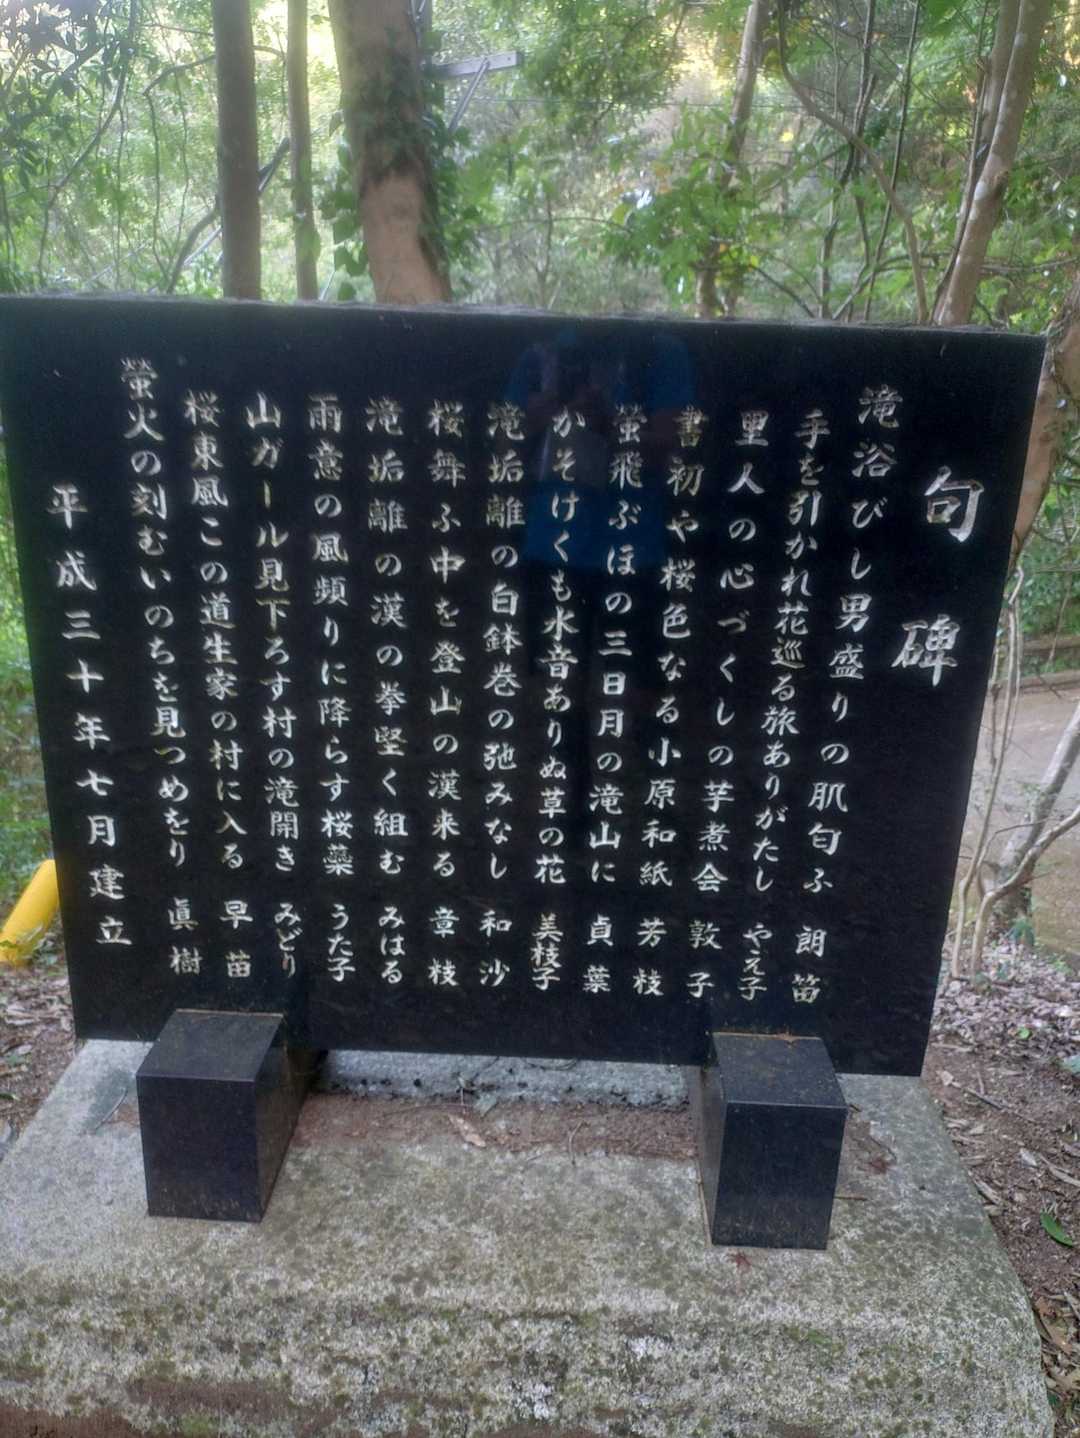 句碑
滝浴びし男盛りの肌匂ふ 朗笛
手を引かれ花巡る旅ありがたし やえ子
里人の心づくしの芋煮会 敦子
書初や桜色なる小原和紙 芳枝
蛍飛ぶほの三日月の滝山に 貞葉
かそけくも水音ありぬ草の花 美枝子
滝垢離の白鉢巻の弛みなし 和沙
桜舞ふ中を登山の漢来る 章枝
滝垢離の漢の拳堅く組む みはる
雨意の風頻りに降らす桜蘂 うた子
山ガール見下ろす村の滝開き みどり
桜東風この道生家の村に入る 早苗
螢火の刻むいのちを見つめをり 眞樹
平成三十年七月建立